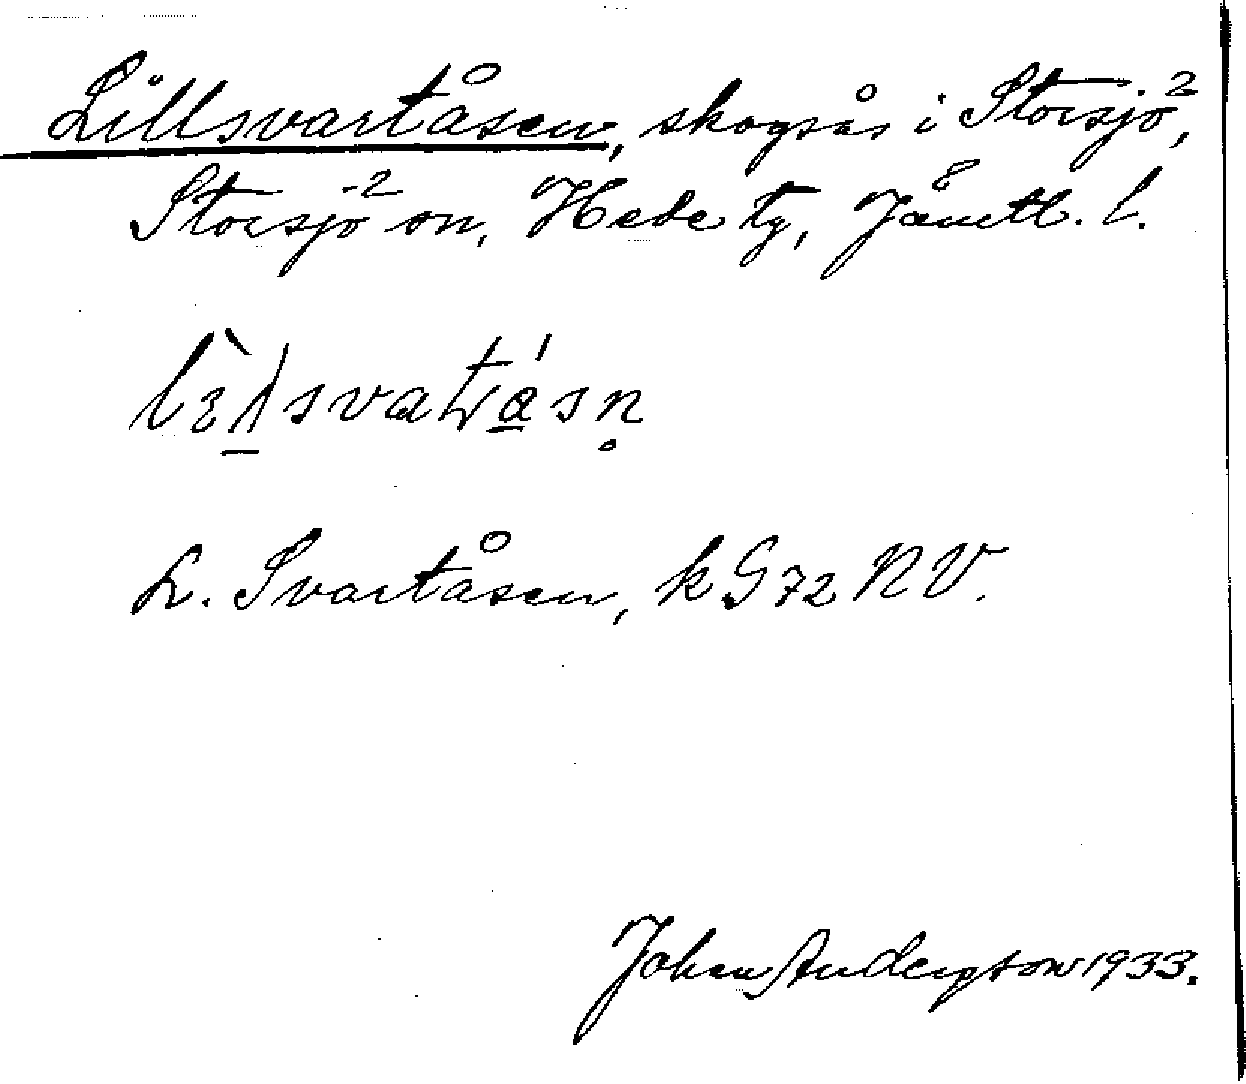 Lillsvartåsen, skogsås i Storsjö,
Storsjö sn, Hede tg, Jämtl. l.
L. Svartåsen, k G72 NV.
Johan Andersson 1933.